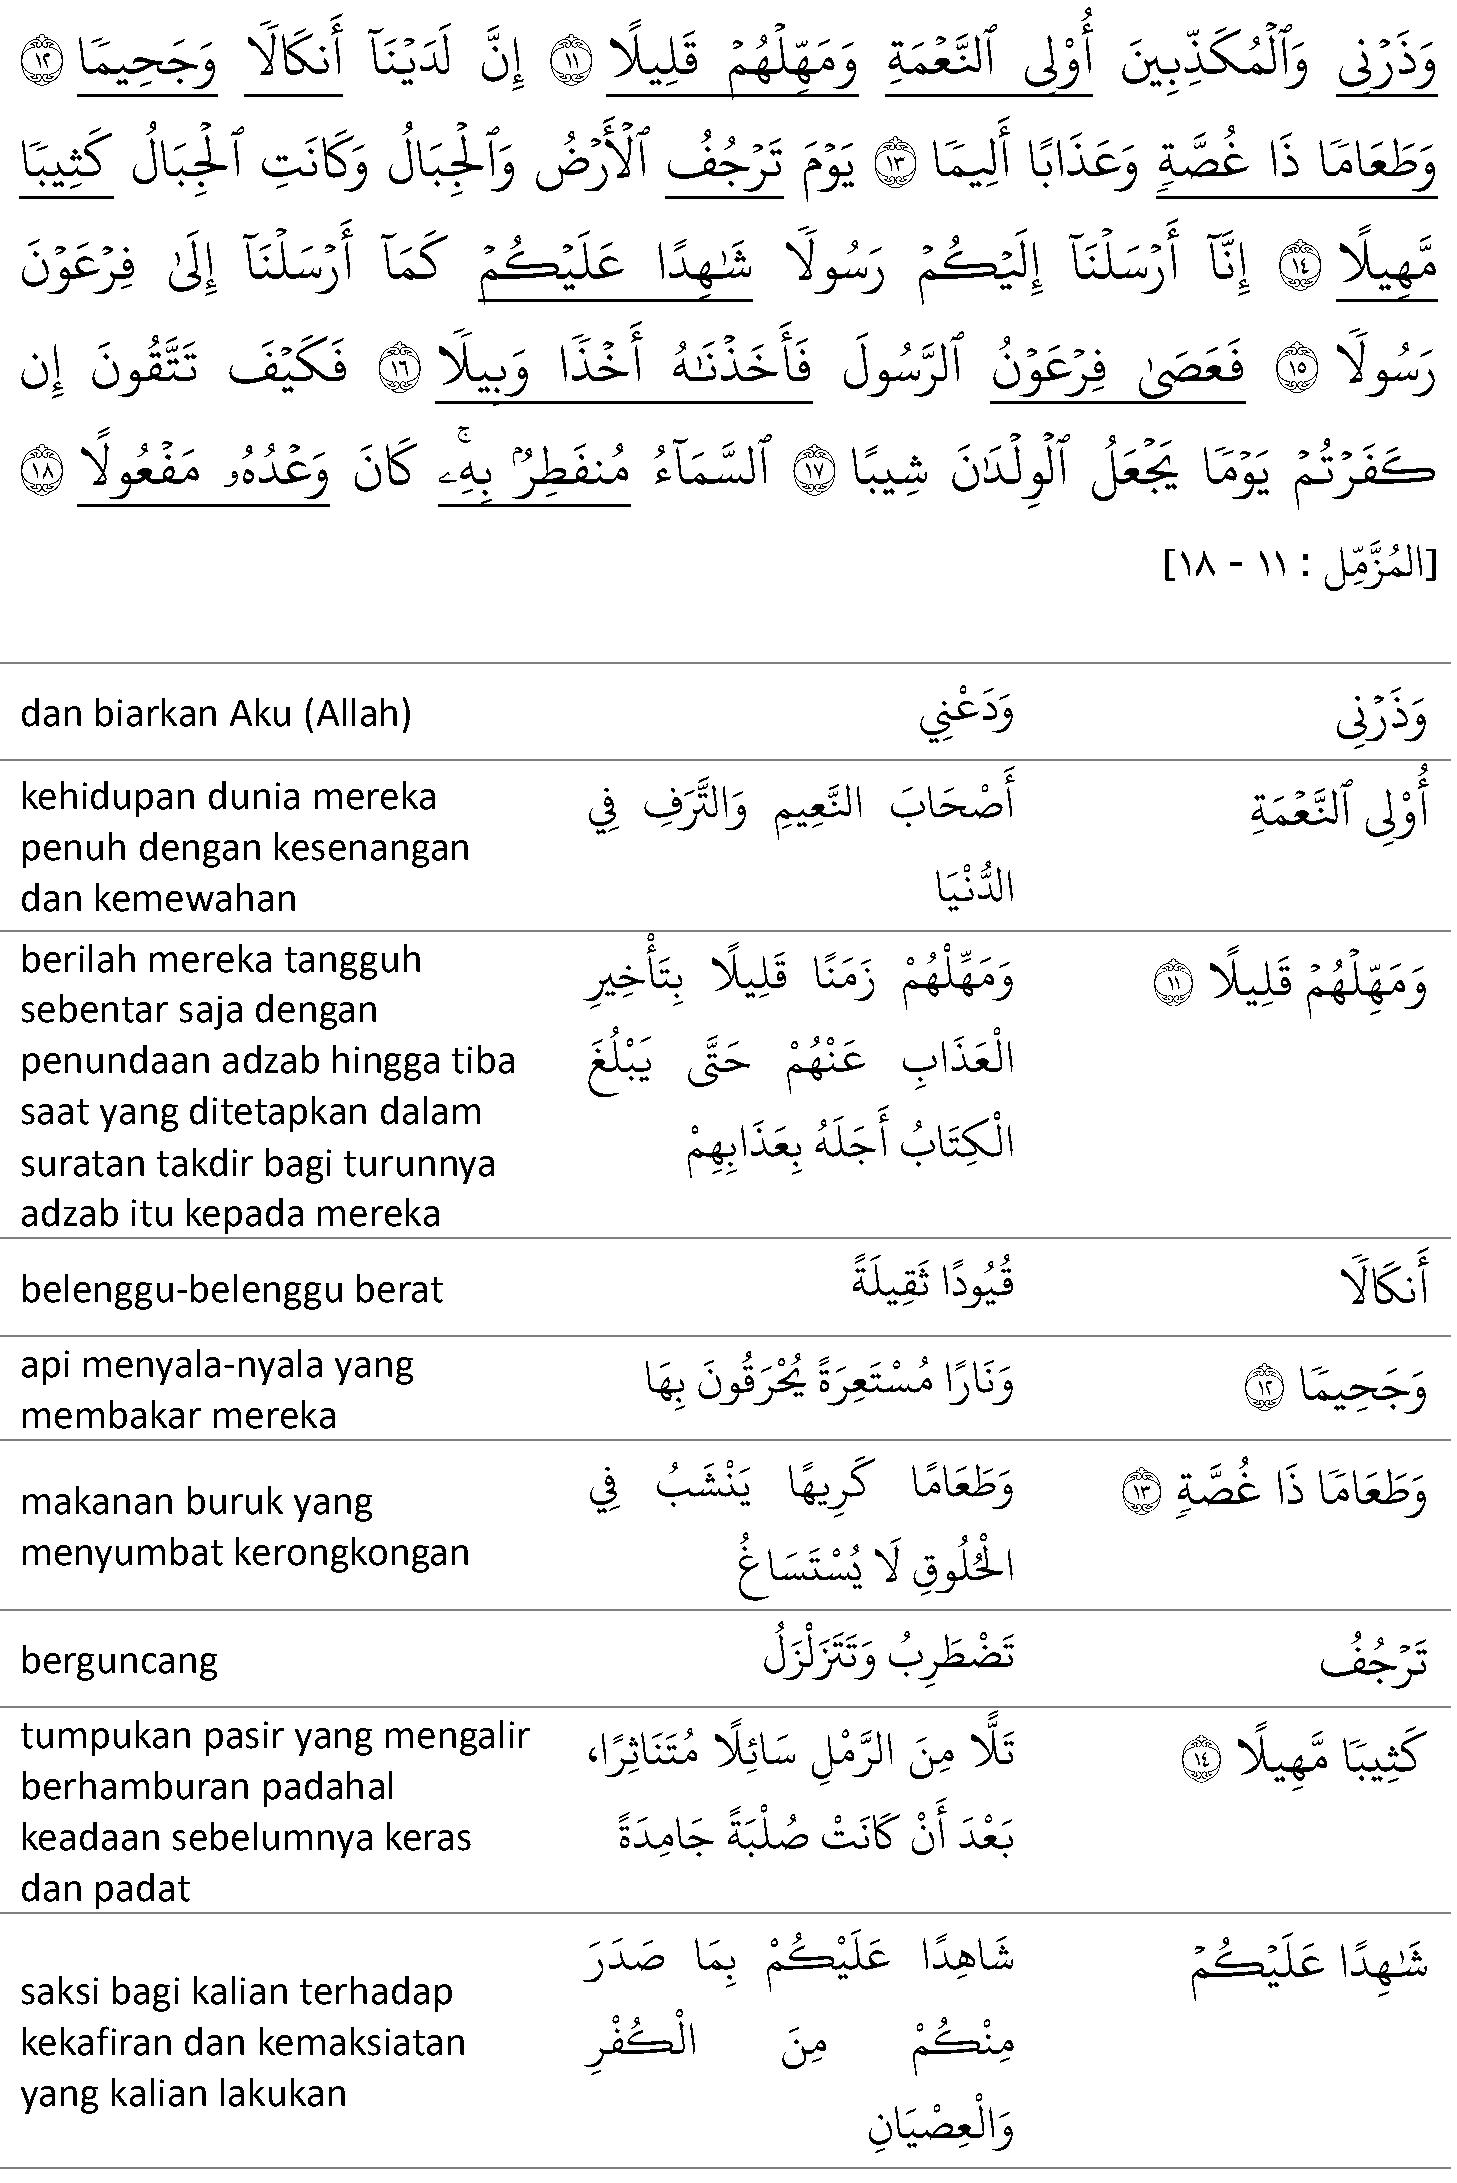 وَذَرۡنِي وَٱلۡمُكَذِّبِينَ أُوْلِي ٱلنَّعۡمَةِ وَمَهِّلۡهُمۡ قَلِيلًا ١١ إِنَّ لَدَيۡنَآ أَنكَالٗا وَجَحِيمٗا ١٢
وَطَعَامٗا ذَا غُصَّةٖ وَعَذَابًا أَلِيمٗا ١٣ يَوۡمَ تَرۡجُفُ ٱلۡأَرۡضُ وَٱلۡجِبَالُ وَكَانَتِ ٱلۡجِبَالُ كَثِيبٗا
مَّهِيلًا ١٤ إِنَّآ أَرۡسَلۡنَآ إِلَيۡكُمۡ رَسُولٗا شَٰهِدًا عَلَيۡكُمۡ كَمَآ أَرۡسَلۡنَآ إِلَىٰ فِرۡعَوۡنَ
رَسُولٗا ١٥ فَعَصَىٰ فِرۡعَوۡنُ ٱلرَّسُولَ فَأَخَذۡنَٰهُ أَخۡذٗا وَبِيلٗا ١٦ فَكَيۡفَ تَتَّقُونَ إِن
كَفَرۡتُمۡ يَوۡمٗا يَجۡعَلُ ٱلۡوِلۡدَٰنَ شِيبًا ١٧ ٱلسَّمَآءُ مُنفَطِرُۢ بِهِۦۚ كَانَ وَعۡدُهُۥ مَفۡعُولًا ١٨
[المُزَّمِّل : ١١ - ١٨]
وَذَرۡنِي
وَدَعْنِي
dan biarkan Aku (Allah)
أُوْلِي ٱلنَّعۡمَةِ
أَصْحَابَ النَّعِيمِ وَالتَّرَفِ فِي
الدُّنْيَا
kehidupan dunia mereka
penuh dengan kesenangan
dan kemewahan
وَمَهِّلۡهُمۡ قَلِيلًا ١١
وَمَهِّلْهُمْ زَمَنًا قَلِيلًا بِتَأْخِيرِ
الْعَذَابِ عَنْهُمْ حَتَّى يَبْلُغَ
الْكِتَابُ أَجَلَهُ بِعَذَابِهِمْ
berilah mereka tangguh
sebentar saja dengan
penundaan adzab hingga tiba
saat yang ditetapkan dalam
suratan takdir bagi turunnya
adzab itu kepada mereka
أَنكَالٗا
قُيُودًا ثَقِيلَةً
belenggu-belenggu berat
وَجَحِيمٗا ١٢
وَنَارًا مُسْتَعِرَةً يُحْرَقُونَ بِهَا
api menyala-nyala yang
membakar mereka
وَطَعَامٗا ذَا غُصَّةٖ ١٣
وَطَعَامًا كَرِيهًا يَنْشَبُ فِي
الْحُلُوقِ لَا يُسْتَسَاغُ
makanan buruk yang
menyumbat kerongkongan
تَرۡجُفُ
تَضْطَرِبُ وَتَتَزَلْزَلُ
berguncang
كَثِيبٗا مَّهِيلًا ١٤
تَلًّا مِنَ الرَّمْلِ سَائِلًا مُتَنَاثِرًا،
بَعْدَ أَنْ كَانَتْ صُلْبَةً جَامِدَةً
tumpukan pasir yang mengalir
berhamburan padahal
keadaan sebelumnya keras
dan padat
شَٰهِدًا عَلَيۡكُمۡ
شَاهِدًا عَلَيْكُمْ بِمَا صَدَرَ
مِنْكُمْ مِنَ الْكُفْرِ
وَالْعِصْيَانِ
saksi bagi kalian terhadap
kekafiran dan kemaksiatan
yang kalian lakukan